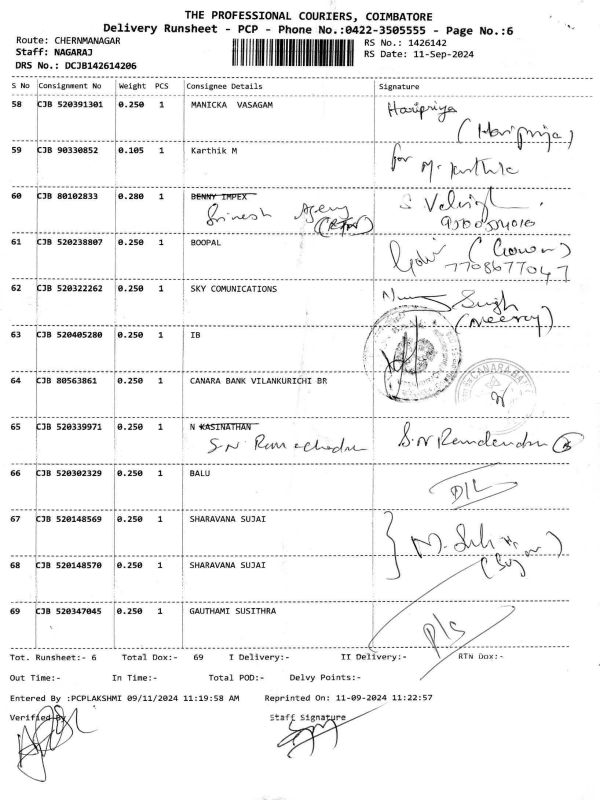 THE PROFESSIONAL COURIERS, COIMBATORE
Delivery Runsheet - PCP - Phone No.:0422-3505555 - Page No.:6
Route: CHERNMANAGAR RS No.: 1426142
Staff: NAGARAJ RS Date: 11-Sep-2024
DRS No.: DCJB142614206
S No Consignment No Weight PCS Consignee Details Signature
58 CJB 520391301 0.250 1 MANICKA VASAGAM Haripriya
(Haripriya)
59 CJB 90330852 0.105 1 Karthik M for
60 CJB 80102833 0.280 1 BENNY IMPEX
61 CJB 520238807 0.250 1 BOOPAL
7708677047
62 CJB 520322262 0.250 1 SKY COMUNICATIONS Singh
63 CJB 520405280 0.250 1 IB
64 CJB 80563861 0.250 1 CANARA BANK VILANKURICHI BR CANARA BA
65 CJB 520339971 0.250 1 N KASINATHAN
S.N S.N
66 CJB 520302329 0.250 1 BALU D/L
67 CJB 520148569 0.250 1 SHARAVANA SUJAI
68 CJB 520148570 0.250 1 SHARAVANA SUJAI
69 CJB 520347045 0.250 1 GAUTHAMI SUSITHRA P/s
Tot. Runsheet:- 6 Total Dox:- 69 I Delivery:- II Delivery:- RTN Dox:-
Out Time:- In Time:- Total POD:- Delvy Points:-
Entered By :PCPLAKSHMI 09/11/2024 11:19:58 AM Reprinted On: 11-09-2024 11:22:57
Verified By Staff Signature